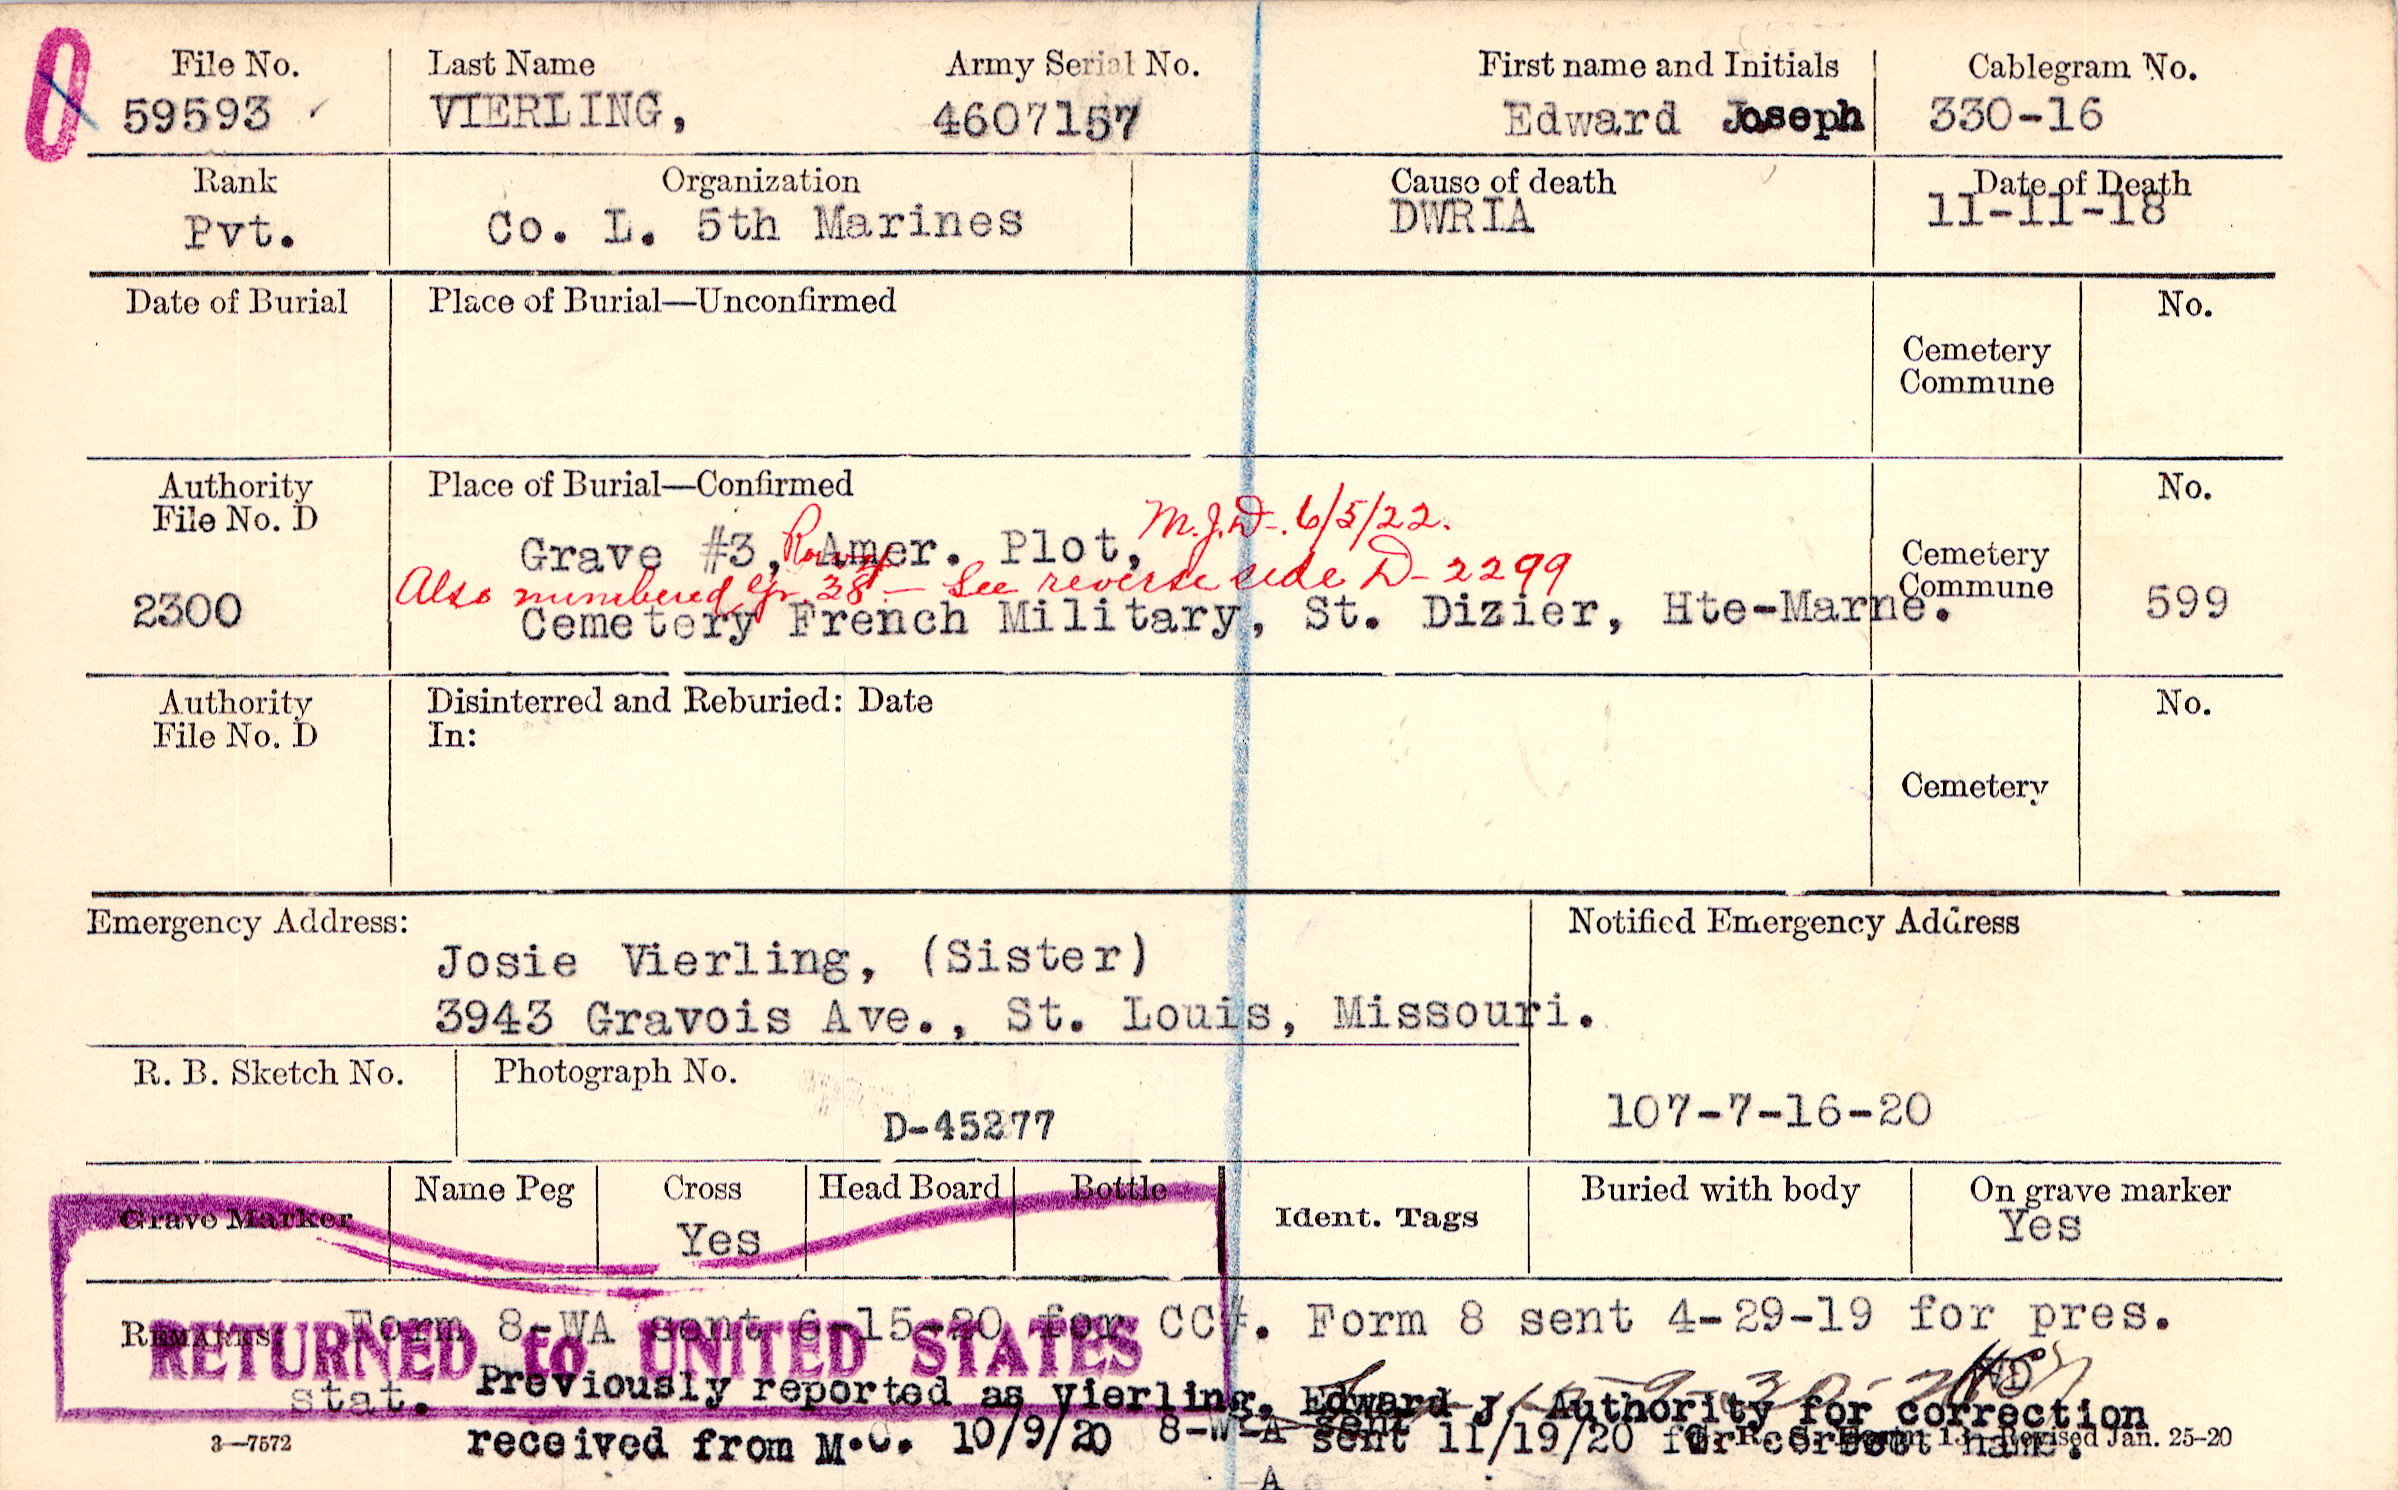 File No. Last Name Army Serial No. First name and Initials Cablegram No.
59593 VIERLING, 4607157 Edward Joseph 330-16
Rank Organization Cause of death Date of Death
Pvt. Co. L. 5th Marines DWRIA 11-11-18
Date of Burial Place of Burial—Unconfirmed No.
Cemetery
Commune
Authority Place of Burial—Confirmed No.
File No. D
M.J.D-. 6/5/22.
Grave #3, Amer. Plot, Cemetery
Also numbered Gr. 38 — See reverse side D-2299
Commune
2300 Cemetery French Military, St. Dizier, Hte-Marne. 599
Authority Disinterred and Reburied: Date No.
File No. D In:
Cemetery
Emergency Address: Notified Emergency Address
Josie Vierling, (Sister)
3943 Gravois Ave., St. Louis, Missouri.
R. B. Sketch No. Photograph No.
D-45277 107-7-16-20
Grave Marker Name Peg Cross Head Board Bottle Ident. Tags Buried with body On grave marker
Yes Yes
REMARKS: Form 8-WA sent 6-15-20 for CC#. Form 8 sent 4-29-19 for pres.
RETURNED to UNITED STATES
stat. Previously reported as Vierling, Edward J. Authority for correction
received from M.C. 10/9/20 8-W-A sent 11/19/20 for correct name.
3—7572 Revised Jan. 25-20